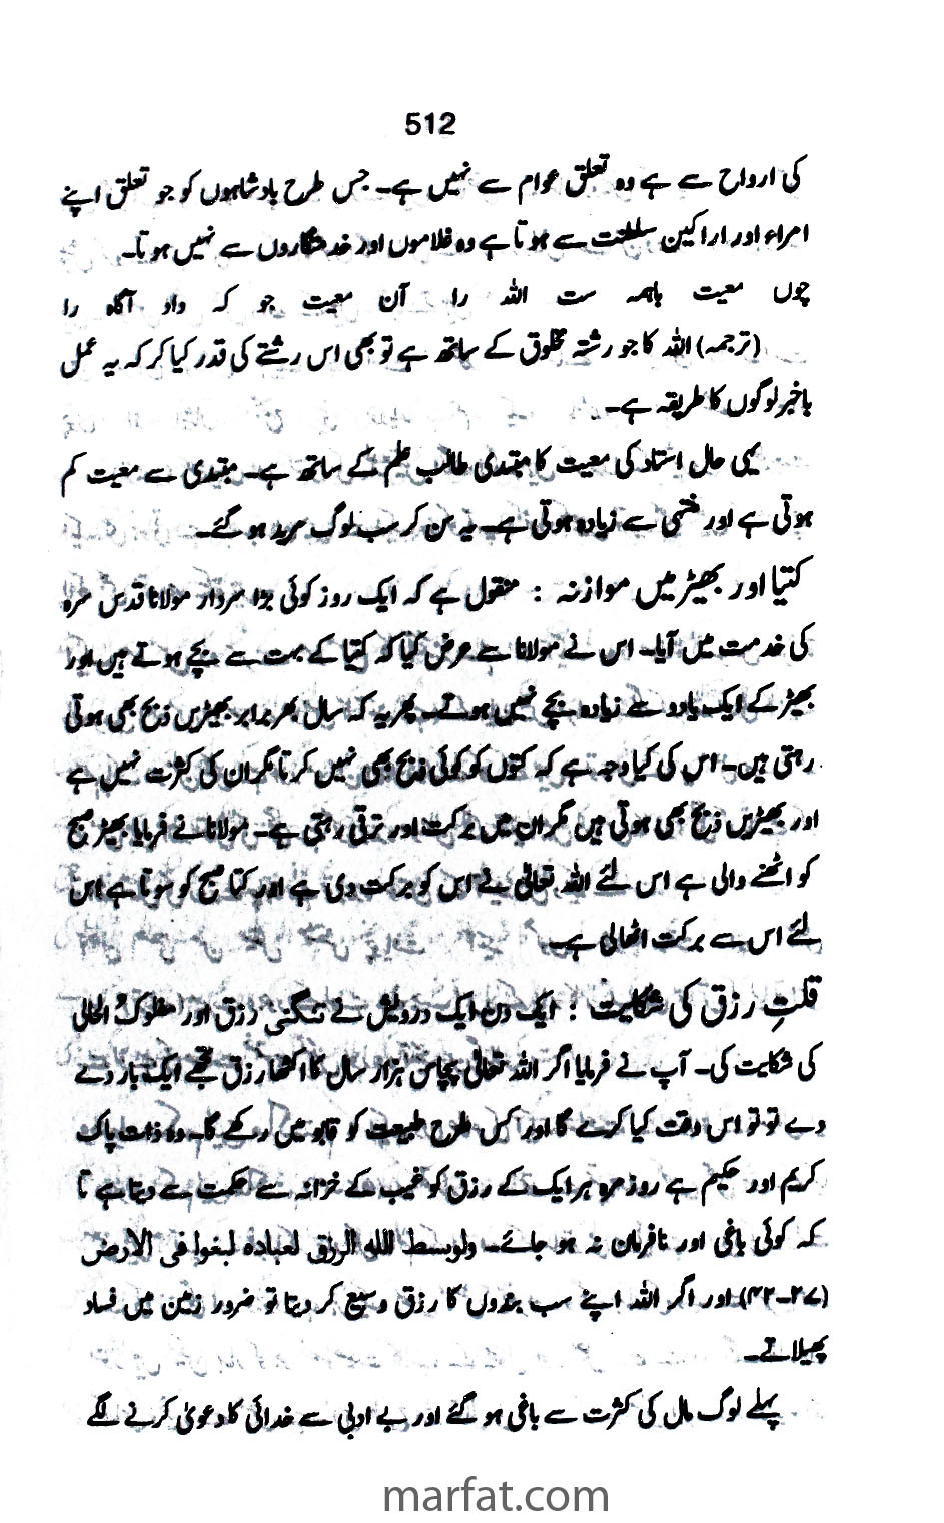 512
کی ارواح سے ہے وہ تعلق عوام سے نہیں ہے۔ جس طرح بادشاہوں کو جو تعلق اپنے
امراء اور اراکین سلطنت سے ہوتا ہے وہ غلاموں اور خدمتگاروں سے نہیں ہوتا۔
چوں معیت باہمہ ست اللہ را آن معیت جو کہ داد آگاہ را
(ترجمہ) اللہ کا جو رشتہ مخلوق کے ساتھ ہے تو بھی اس رشتے کی قدر کیا کر کہ یہ عمل
باخبر لوگوں کا طریقہ ہے۔
یہی حال استاد کی معیت کا مبتدی طالب علم کے ساتھ ہے۔ مبتدی سے معیت کم
ہوتی ہے اور منتہی سے زیادہ ہوتی ہے۔ یہ سن کر سب لوگ مرید ہو گئے۔
کتیا اور بھیڑ میں موازنہ : منقول ہے کہ ایک روز کوئی بڑا سردار مولانا قدس سرہ
کی خدمت میں آیا۔ اس نے مولانا سے عرض کیا کہ کتیا کے بہت سے بچے ہوتے ہیں اور
بھیڑ کے ایک یا دو سے زیادہ بچے نہیں ہوتے۔ پھر یہ کہ سال بھر برابر بھیڑیں ذبح بھی ہوتی
رہتی ہیں۔ اس کی کیا وجہ ہے کہ کتوں کو کوئی ذبح بھی نہیں کرتا مگر ان کی کثرت نہیں ہے
اور بھیڑیں ذبح بھی ہوتی ہیں مگر ان میں برکت اور ترقی رہتی ہے۔ مولانا نے فرمایا بھیڑ صبح
کو اٹھنے والی ہے اس لئے اللہ تعالیٰ نے اس کو برکت دی ہے اور کتا صبح کو سوتا ہے اس
لئے اس سے برکت اٹھالی ہے۔
قلتِ رزق کی شکایت : ایک دن ایک درویش نے تنگئی رزق اور مفلوک الحالی
کی شکایت کی۔ آپ نے فرمایا اگر اللہ تعالیٰ پچاس ہزار سال کا اکٹھا رزق تجھے ایک بار دے
دے تو تو اس وقت کیا کرے گا اور کس طرح طبیعت کو قابو میں رکھے گا۔ وہ ذات پاک
کریم اور حکیم ہے روز مرہ ہر ایک کے رزق کو غیب کے خزانہ سے حکمت سے دیتا ہے تا
کہ کوئی باغی اور نافرمان نہ ہو جائے۔ ولوبسط اللہ الرزق لعبادہ لبغوا فی الارض
(۴۲-۲۷) اور اگر اللہ اپنے سب بندوں کا رزق وسیع کر دیتا تو ضرور زمین میں فساد
پھیلاتے۔
پہلے لوگ مال کی کثرت سے باغی ہو گئے اور بے ادبی سے خدائی کا دعویٰ کرنے لگے
marfat.com